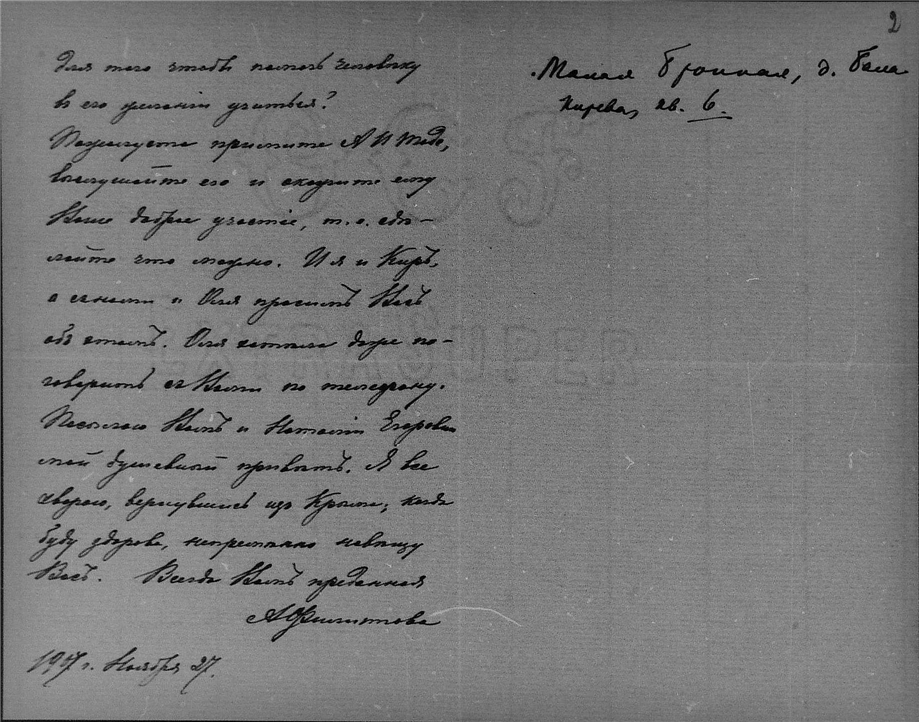 2
для того чтобъ помочь человѣку
въ его желаніи учиться?
Пожалуста примите А И
выслушайте его и окажите ему
Ваше доброе участіе, т. е. сдѣ-
лайте что можно. И я и Киръ,
а съ нами и Оля просимъ Васъ
объ этомъ. Оля хотѣла даже по-
говорить съ Вами по телефону.
Посылаю Вамъ и Наталіи Егоровнѣ
мой душевный привѣтъ. Я все
хвораю, вернувшись изъ Крыма; когда
буду здорова, непремѣнно навѣщу
Васъ. Всегда Вамъ преданная
АФилитова
г. Ноября 27.
Малая Бронная, д. Бала
кирева, кв. 6.